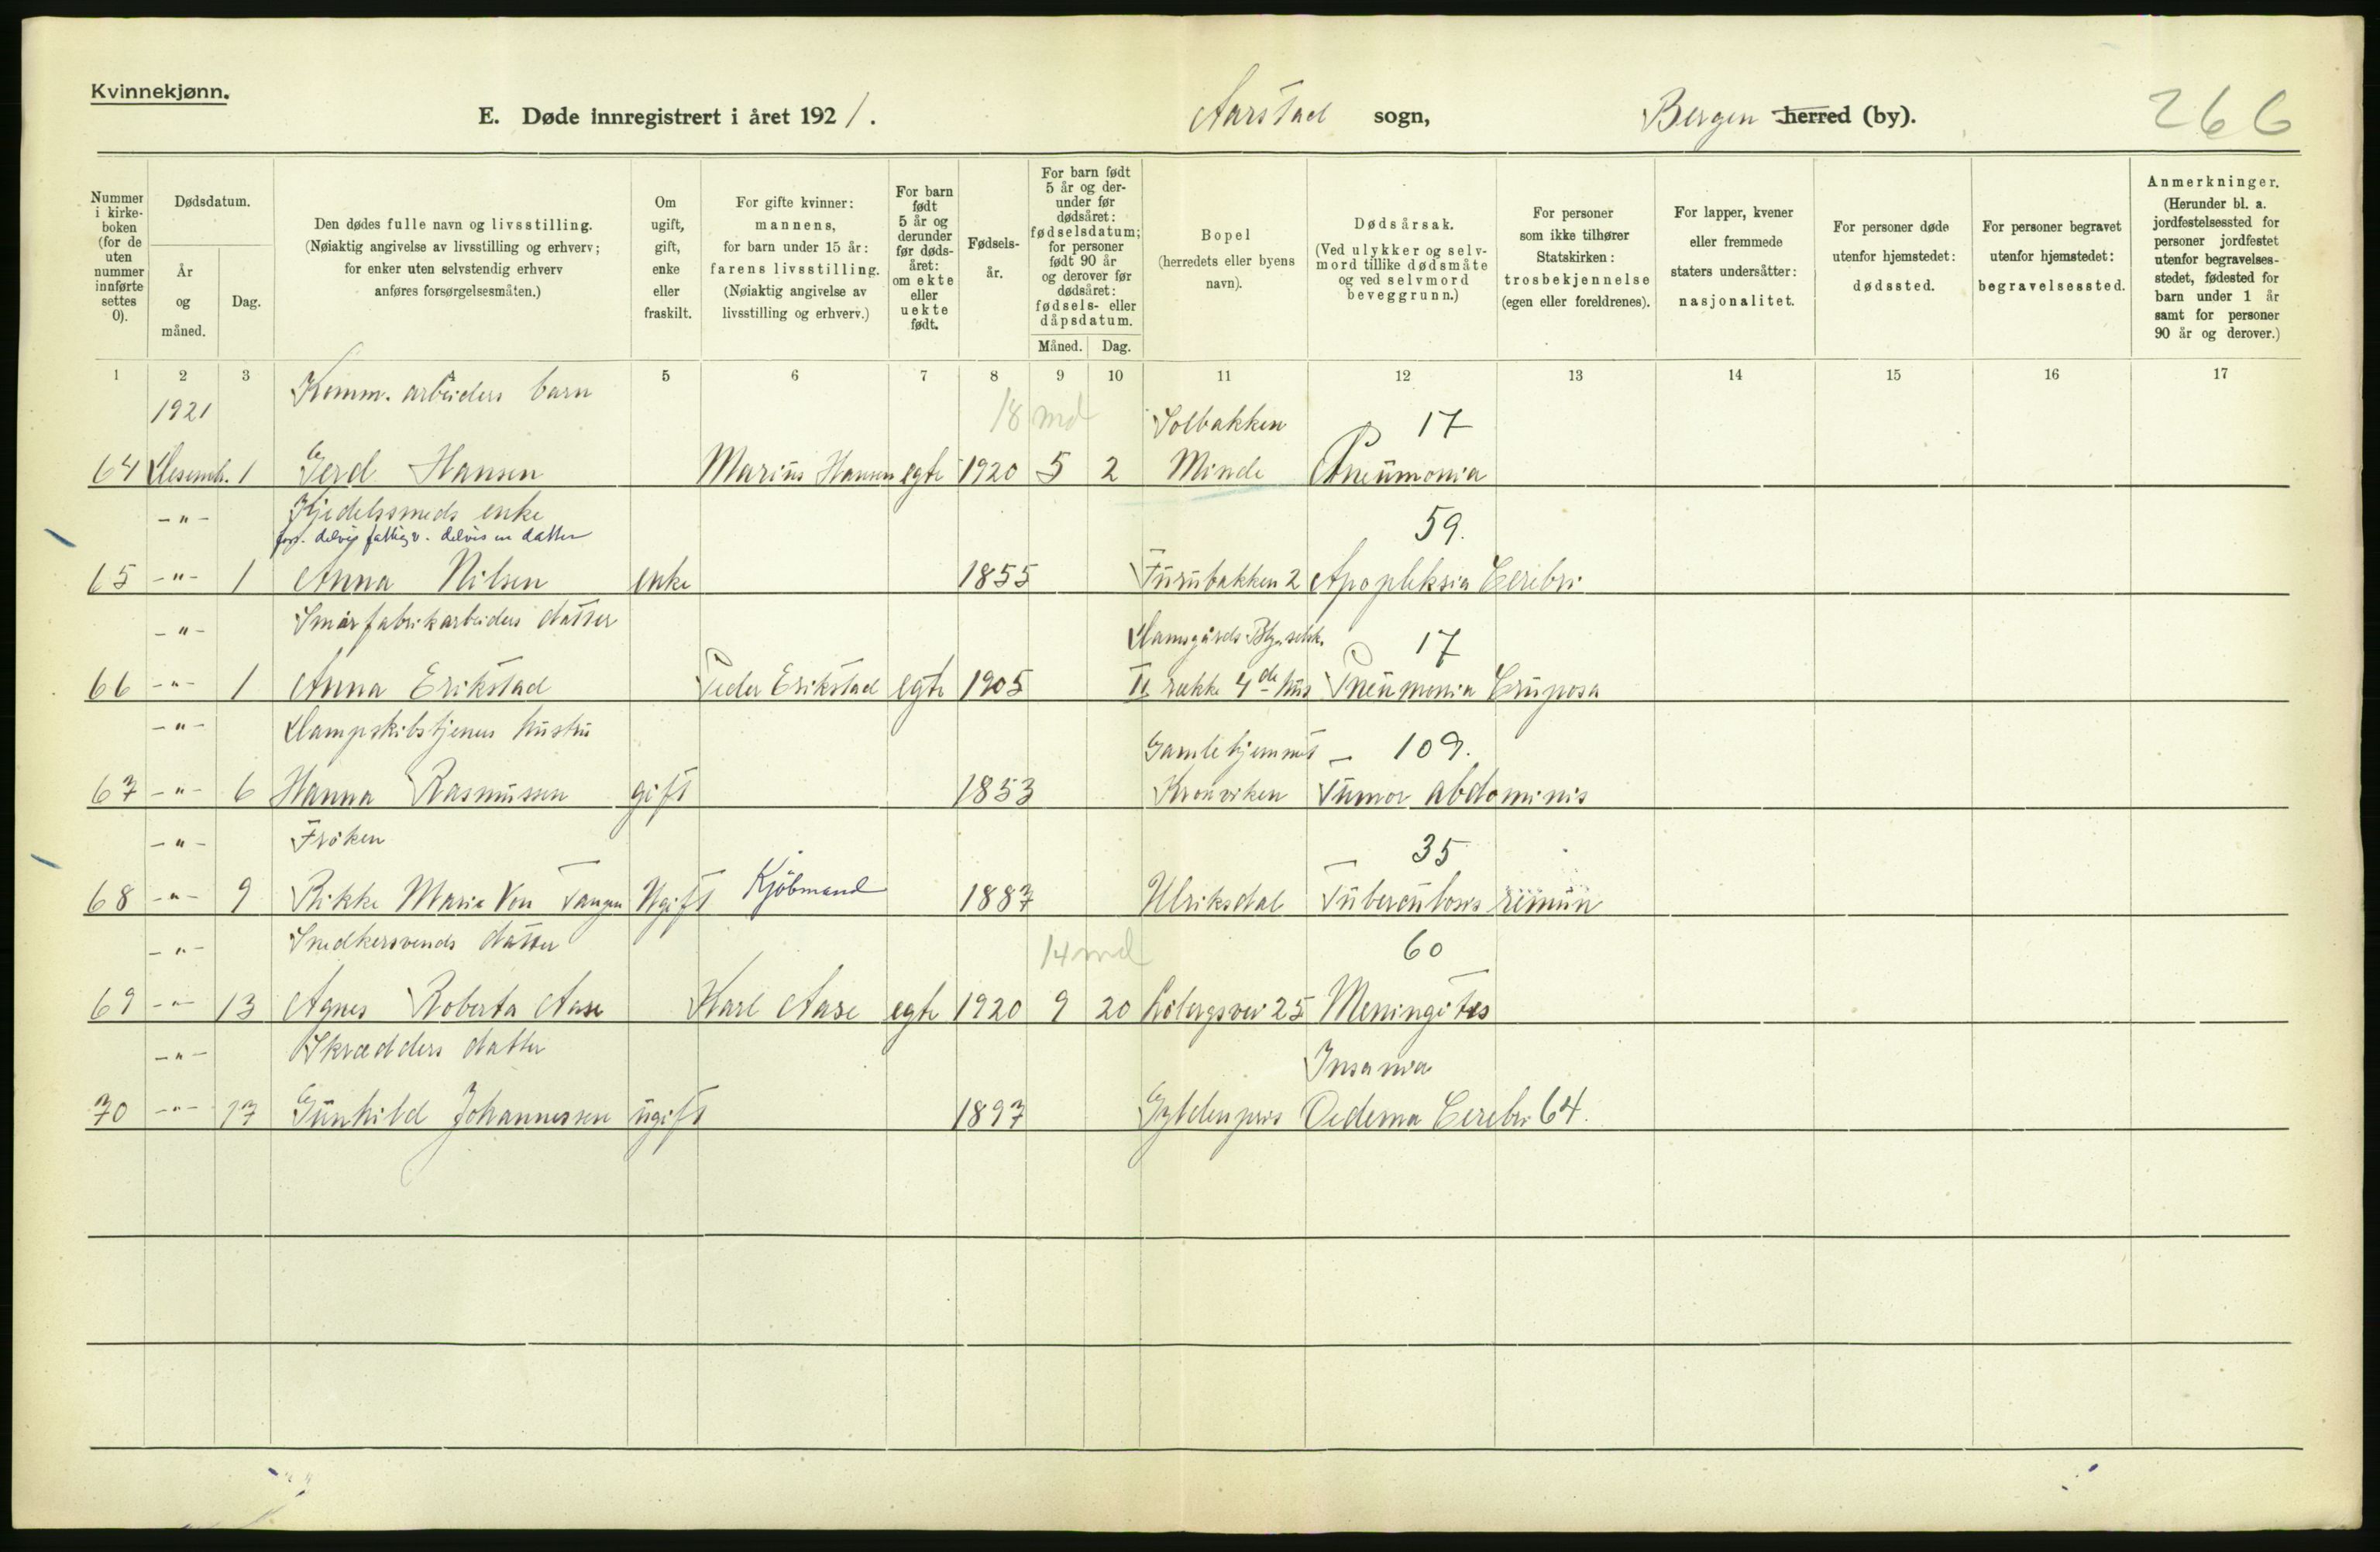 Kvinnekjønn.
E. Døde innregistrert i året 1921. Aarstad sogn, Bergen herred (by). 266
Nummer i kirkeboken (for de uten nummer innførte settes 0).
Dødsdatum.
År og måned.
Dag.
Den dødes fulle navn og livsstilling. (Nøiaktig angivelse av livsstilling og erhverv; for enker uten selvstendig erhverv anføres forsørgelsesmåten.)
Om ugift, gift, enke eller fraskilt.
For gifte kvinner: mannens, for barn under 15 år: farens livsstilling. (Nøiaktig angivelse av livsstilling og erhverv.)
For barn født 5 år og derunder før dødsåret: om ekte eller uekte født.
Fødselsår.
For barn født 5 år og derunder før dødsåret: fødselsdatum; for personer født 90 år og derover før dødsåret: fødsels- eller dåpsdatum.
Måned. Dag.
Bopel (herredets eller byens navn).
Dødsårsak. (Ved ulykker og selvmord tillike dødsmåte og ved selvmord beveggrunn.)
For personer som ikke tilhører Statskirken: trosbekjennelse (egen eller foreldrenes).
For lapper, kvener eller fremmede staters undersåtter: nasjonalitet.
For personer døde utenfor hjemstedet: dødssted.
For personer begravet utenfor hjemstedet: begravelsessted.
Anmerkninger. (Herunder bl. a. jordfestelsessted for personer jordfestet utenfor begravelsesstedet, fødested for barn under 1 år samt for personer 90 år og derover.)
1 2 3 5 6 7 8 9 10 11 12 13 14 15 16 17
1921 Komm. arbeiders barn 18 md Solbakken 17
64 Desemb. 1 Gerd Hansen Marius Hansen egte 1920 5 2 Minde Pneumonia
-"- Kjedelssmeds enke 59.
fors. delvis fattigv. delvis en datter
65 -"- 1 Anna Nilsen enke 1855 Furubakken 2 Apopleksia Cerebri
-"- Smørfabrikarbeiders datter Damsgårds Byselsk. 17
66 -"- 1 Anna Erikstad Peder Erikstad egte 1905 II række 4de hus Pneumonia Cruposa
-"- Dampskibstjeners hustru Gamlehjemmet 109.
67 -"- 6 Hanna Rasmussen gift 1853 Kronviken Tumor abdominis
-"- Frøken 35
68 -"- 9 Rikke Marie Von Tangen Ugift Kjøbmand 1887 Ulriksdal Tuberculosis
-"- Snedkersvends datter 14 md 60
69 -"- 13 Agnes Roberta Aase Karl Aase egte 1920 9 20 25 Meningites
-"- Skrædders datter Insania
70 -"- 17 Gunhild Johannessen ugift 1897 Gyldenpris Oedema Cerebri 64.